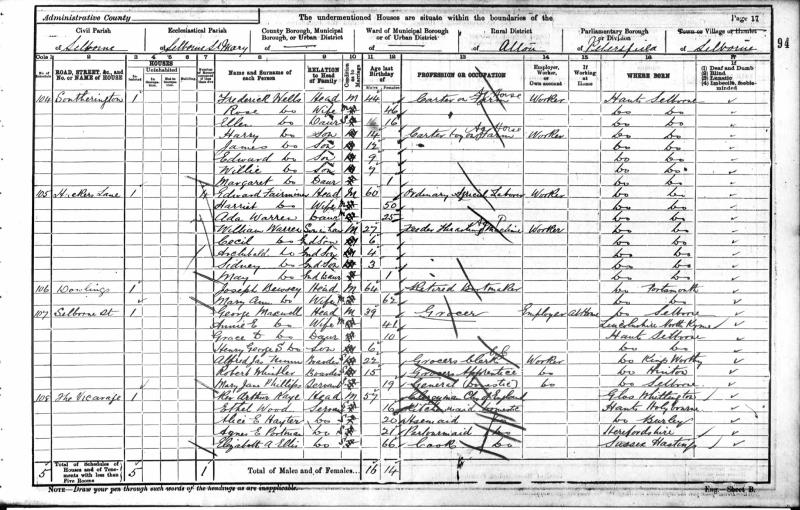 Administrative County
The undermentioned Houses are situate within the boundaries of the
Page 17
94
Civil Parish
of Selborne
Ecclesiastical Parish
of Selborne St Mary
County Borough, Municipal Borough, or Urban District
of
Ward of Municipal Borough or of Urban District
of
Rural District
of Alton
Parliamentary Borough or Division
of Petersfield
Town or Village or Hamlet
of Selborne
Cols. 1 2 3 4 5 6 7 8 9 10 11 12 13 14 15 16 17
ROAD, STREET, &c., and No. or NAME of HOUSE
HOUSES
Uninhabited
Name and Surname of each Person
RELATION to Head of Family
Age last Birthday of
Males Females
PROFESSION OR OCCUPATION
Employer, Worker, or Own account
If Working at Home
WHERE BORN
(1) Deaf and Dumb
(2) Blind
(3) Lunatic
(4) Imbecile, feeble-minded
104 1 Frederick Wells Head M 44 Carter on Farm Horse Worker Hants Selborne
Rose do Wife M 46 do do
Ellen do Daur 16 do do
Harry do Son 14 Carter boy on Farm Horse Worker do do
James do Son 12 do do
Edward do Son 9 do do
Willie do Son 7 do do
Margaret do Daur 1 do do
105 Huckers Lane 1 4 Edward Head M 60 Ordinary Labourer Worker do do
Harriet do Wife M 50 do do
Ada Warren Daur M 25 do do
William Warren Son in law M 27 Feeder Thrashing Machine Worker do do
Cecil do Gnd Son 6 do do
Archibald do Gnd Son 4 do do
Sidney do Gnd Son 3 do do
May do Gnd Daur 1 do do
106 Dowlings 1 Joseph Head M 64 Retired Bootmaker do Portsmouth
Mary Ann do Wife M 62 do do
107 Selborne St 1 George Maxwell Head M 39 Grocer Employer At Home do Selborne
Annie E do Wife M 41 Lincolnshire North Kyme
Grace do Daur 10 Hants Selborne
Henry George do Son 6 do do
Alfred Jas Boarder S 22 Grocers Clerk Worker do Kings Worthy
Robert Boarder S 15 Grocers Apprentice do do Hinton
Mary Jane Phillips Servant S 19 General (domestic) do do Selborne
108 The Vicarage 1 Rev Arthur Kaye Head M 57 Clergyman Ch of England Glos Whittington
Ethel Wood Serva S 16 Kitchenmaid domestic Hants Holybourne
Alice E Hayter do S 20 Hsemaid do do Burley
Agnes E Portman do S 21 Parlormaid do Herefordshire
Elizabeth A Ellis do S 66 Cook do Sussex Hastings
5 Total of Schedules of Houses and of Tenements with less than Five Rooms 5 1 Total of Males and of Females... 16 14
NOTE—Draw your pen through such words of the headings as are inapplicable.
Eng.—Sheet B.